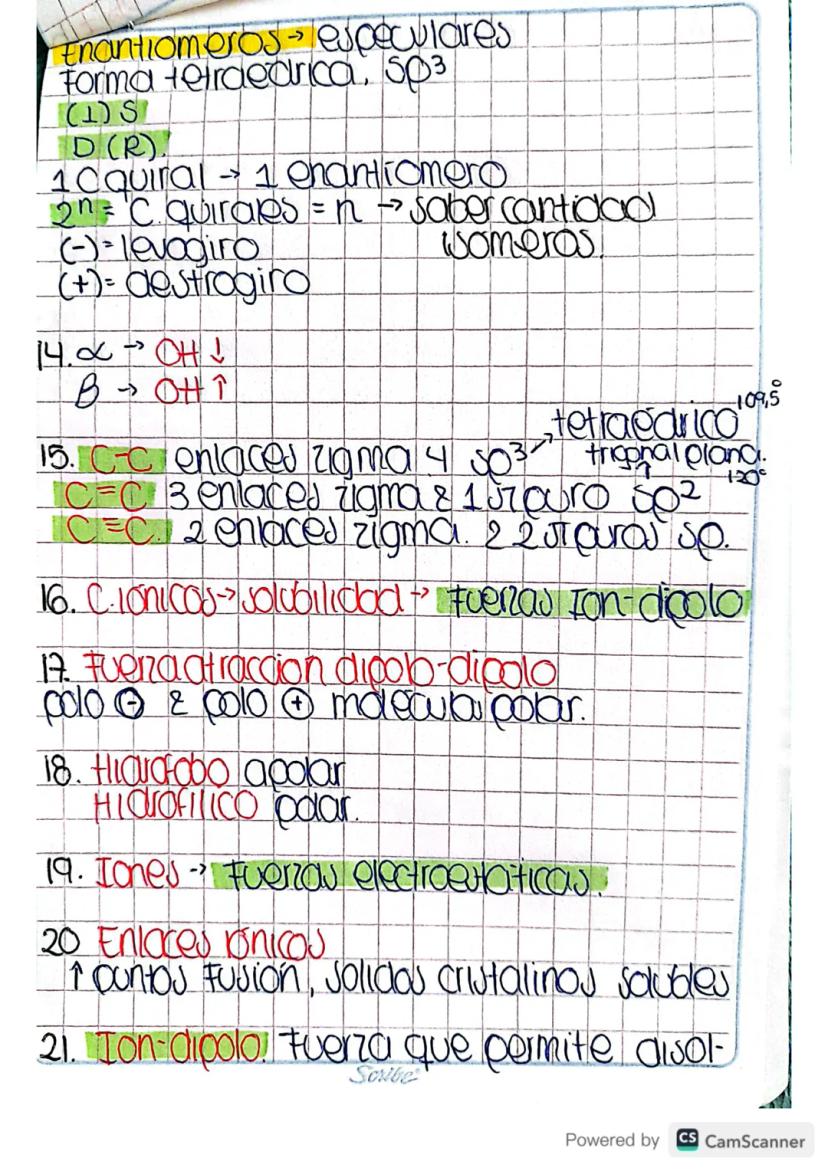 Enantiomeros → especulares
Forma tetraedrica. sp³
(L) S
D (R).
1 C quiral → 1 enantiomero
2ⁿ = C quirales = n → saber cantidad
isomeros.
(-) = levogiro
(+) = destrogiro
14. α → OH ↓
β → OH ↑
15. C-C enlaces zigma 4 sp³ → tetraedrico 109,5°
trigonal plana. 120°
C=C 3 enlaces zigma & 1 π puro sp²
C≡C. 2 enlaces zigma. & 2 π puros sp.
16. C. iónicos → solubilidad → Fuerzas Ion-dipolo
17. Fuerza atraccion dipolo-dipolo
polo ⊖ & polo ⊕ molecula polar.
18. Hidrofobo apolar
Hidrofilico polar.
19. Iones → Fuerzas electroestaticas.
20 Enlaces iónicos
↑ puntos Fusión, solidos cristalinos solubles
21. Ion-dipolo. Fuerza que permite disol-
Scribe
Powered by CS CamScanner